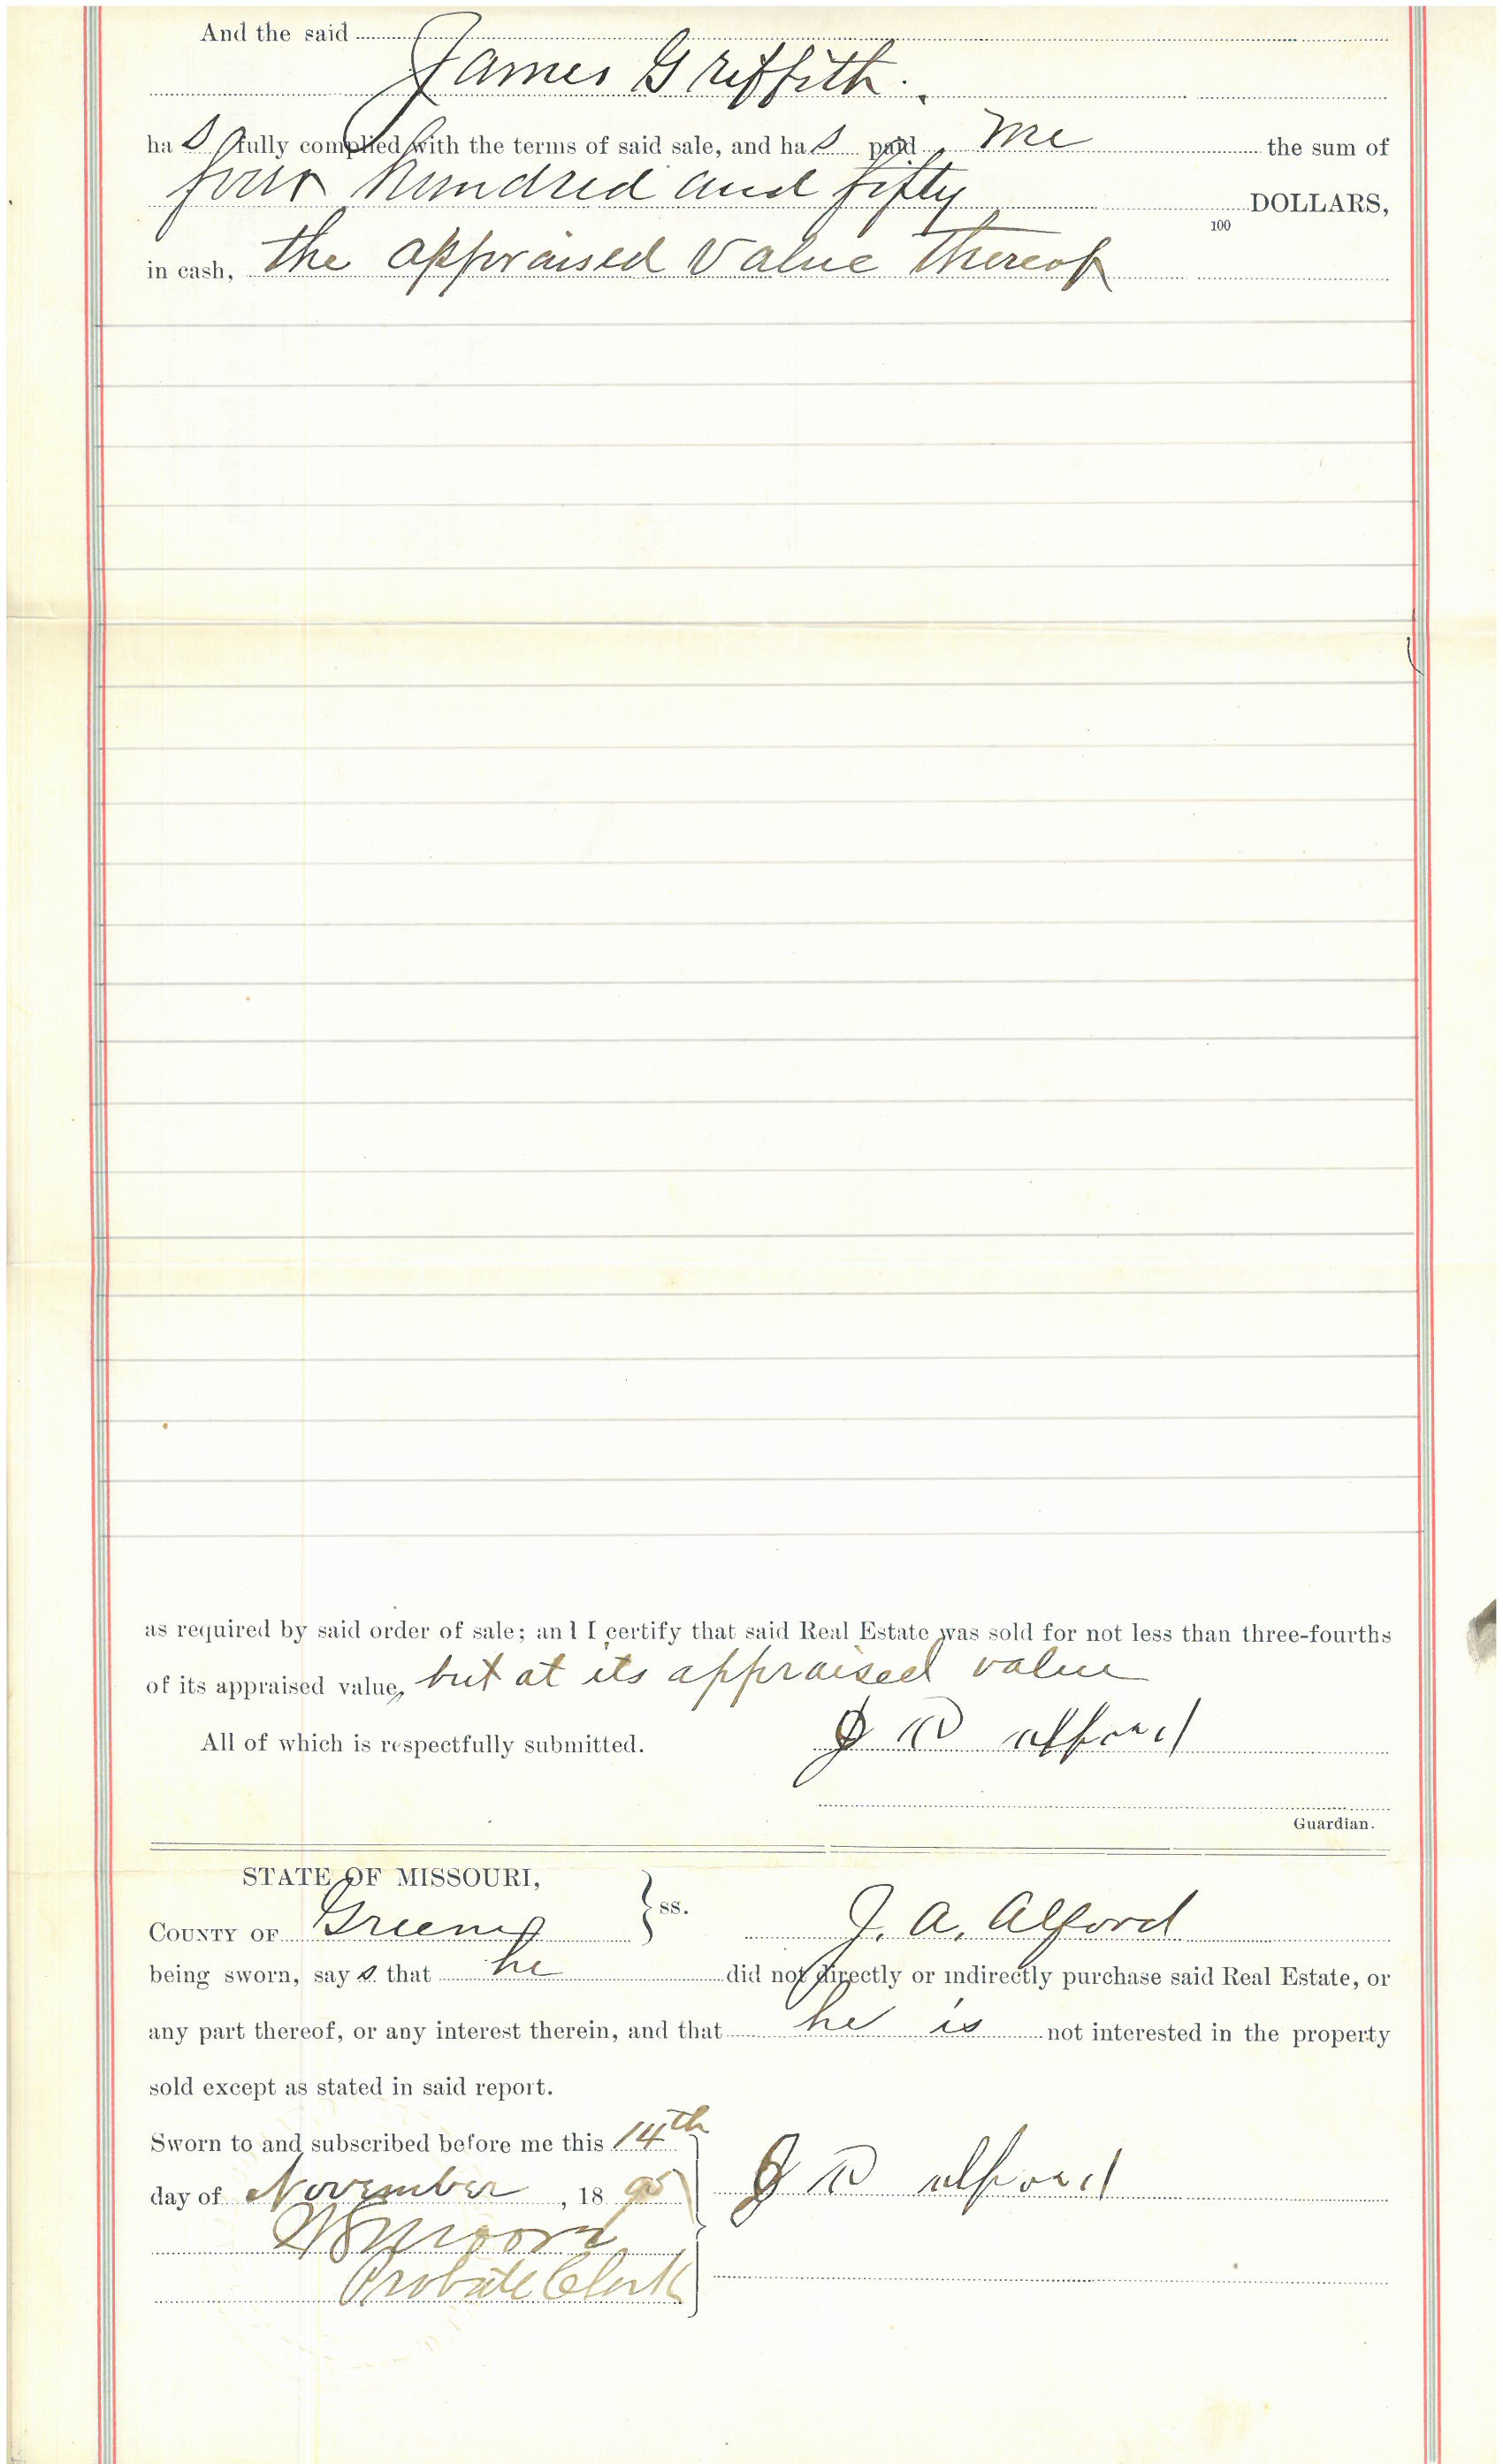 And the said
James Griffith.
has fully complied with the terms of said sale, and has paid me the sum of
four hundred and fifty DOLLARS,
100
in cash, the appraised value thereof
as required by said order of sale; and I certify that said Real Estate was sold for not less than three-fourths
of its appraised value, but at its appraised value
All of which is respectfully submitted. J A Alford
Guardian.
STATE OF MISSOURI,
COUNTY OF Greene } ss. J. A. Alford
being sworn, says that he did not directly or indirectly purchase said Real Estate, or
any part thereof, or any interest therein, and that he is not interested in the property
sold except as stated in said report.
Sworn to and subscribed before me this 14th
day of November, 1895 J A Alford
Moore
Probate Clerk